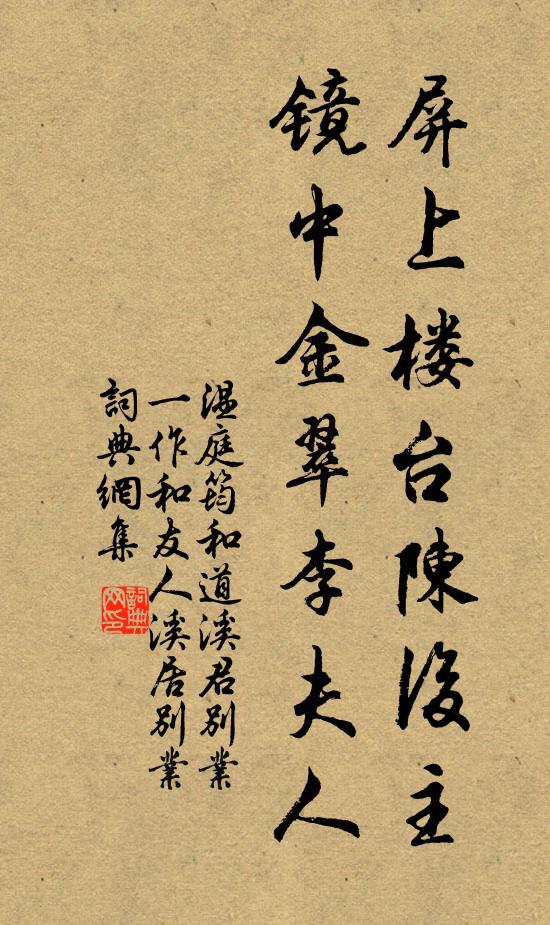 屏上楼台陳後主
镜中金翠李夫人
温庭筠和道溪君别業
一作和友人溪居别業
詞典網集
詞典網印